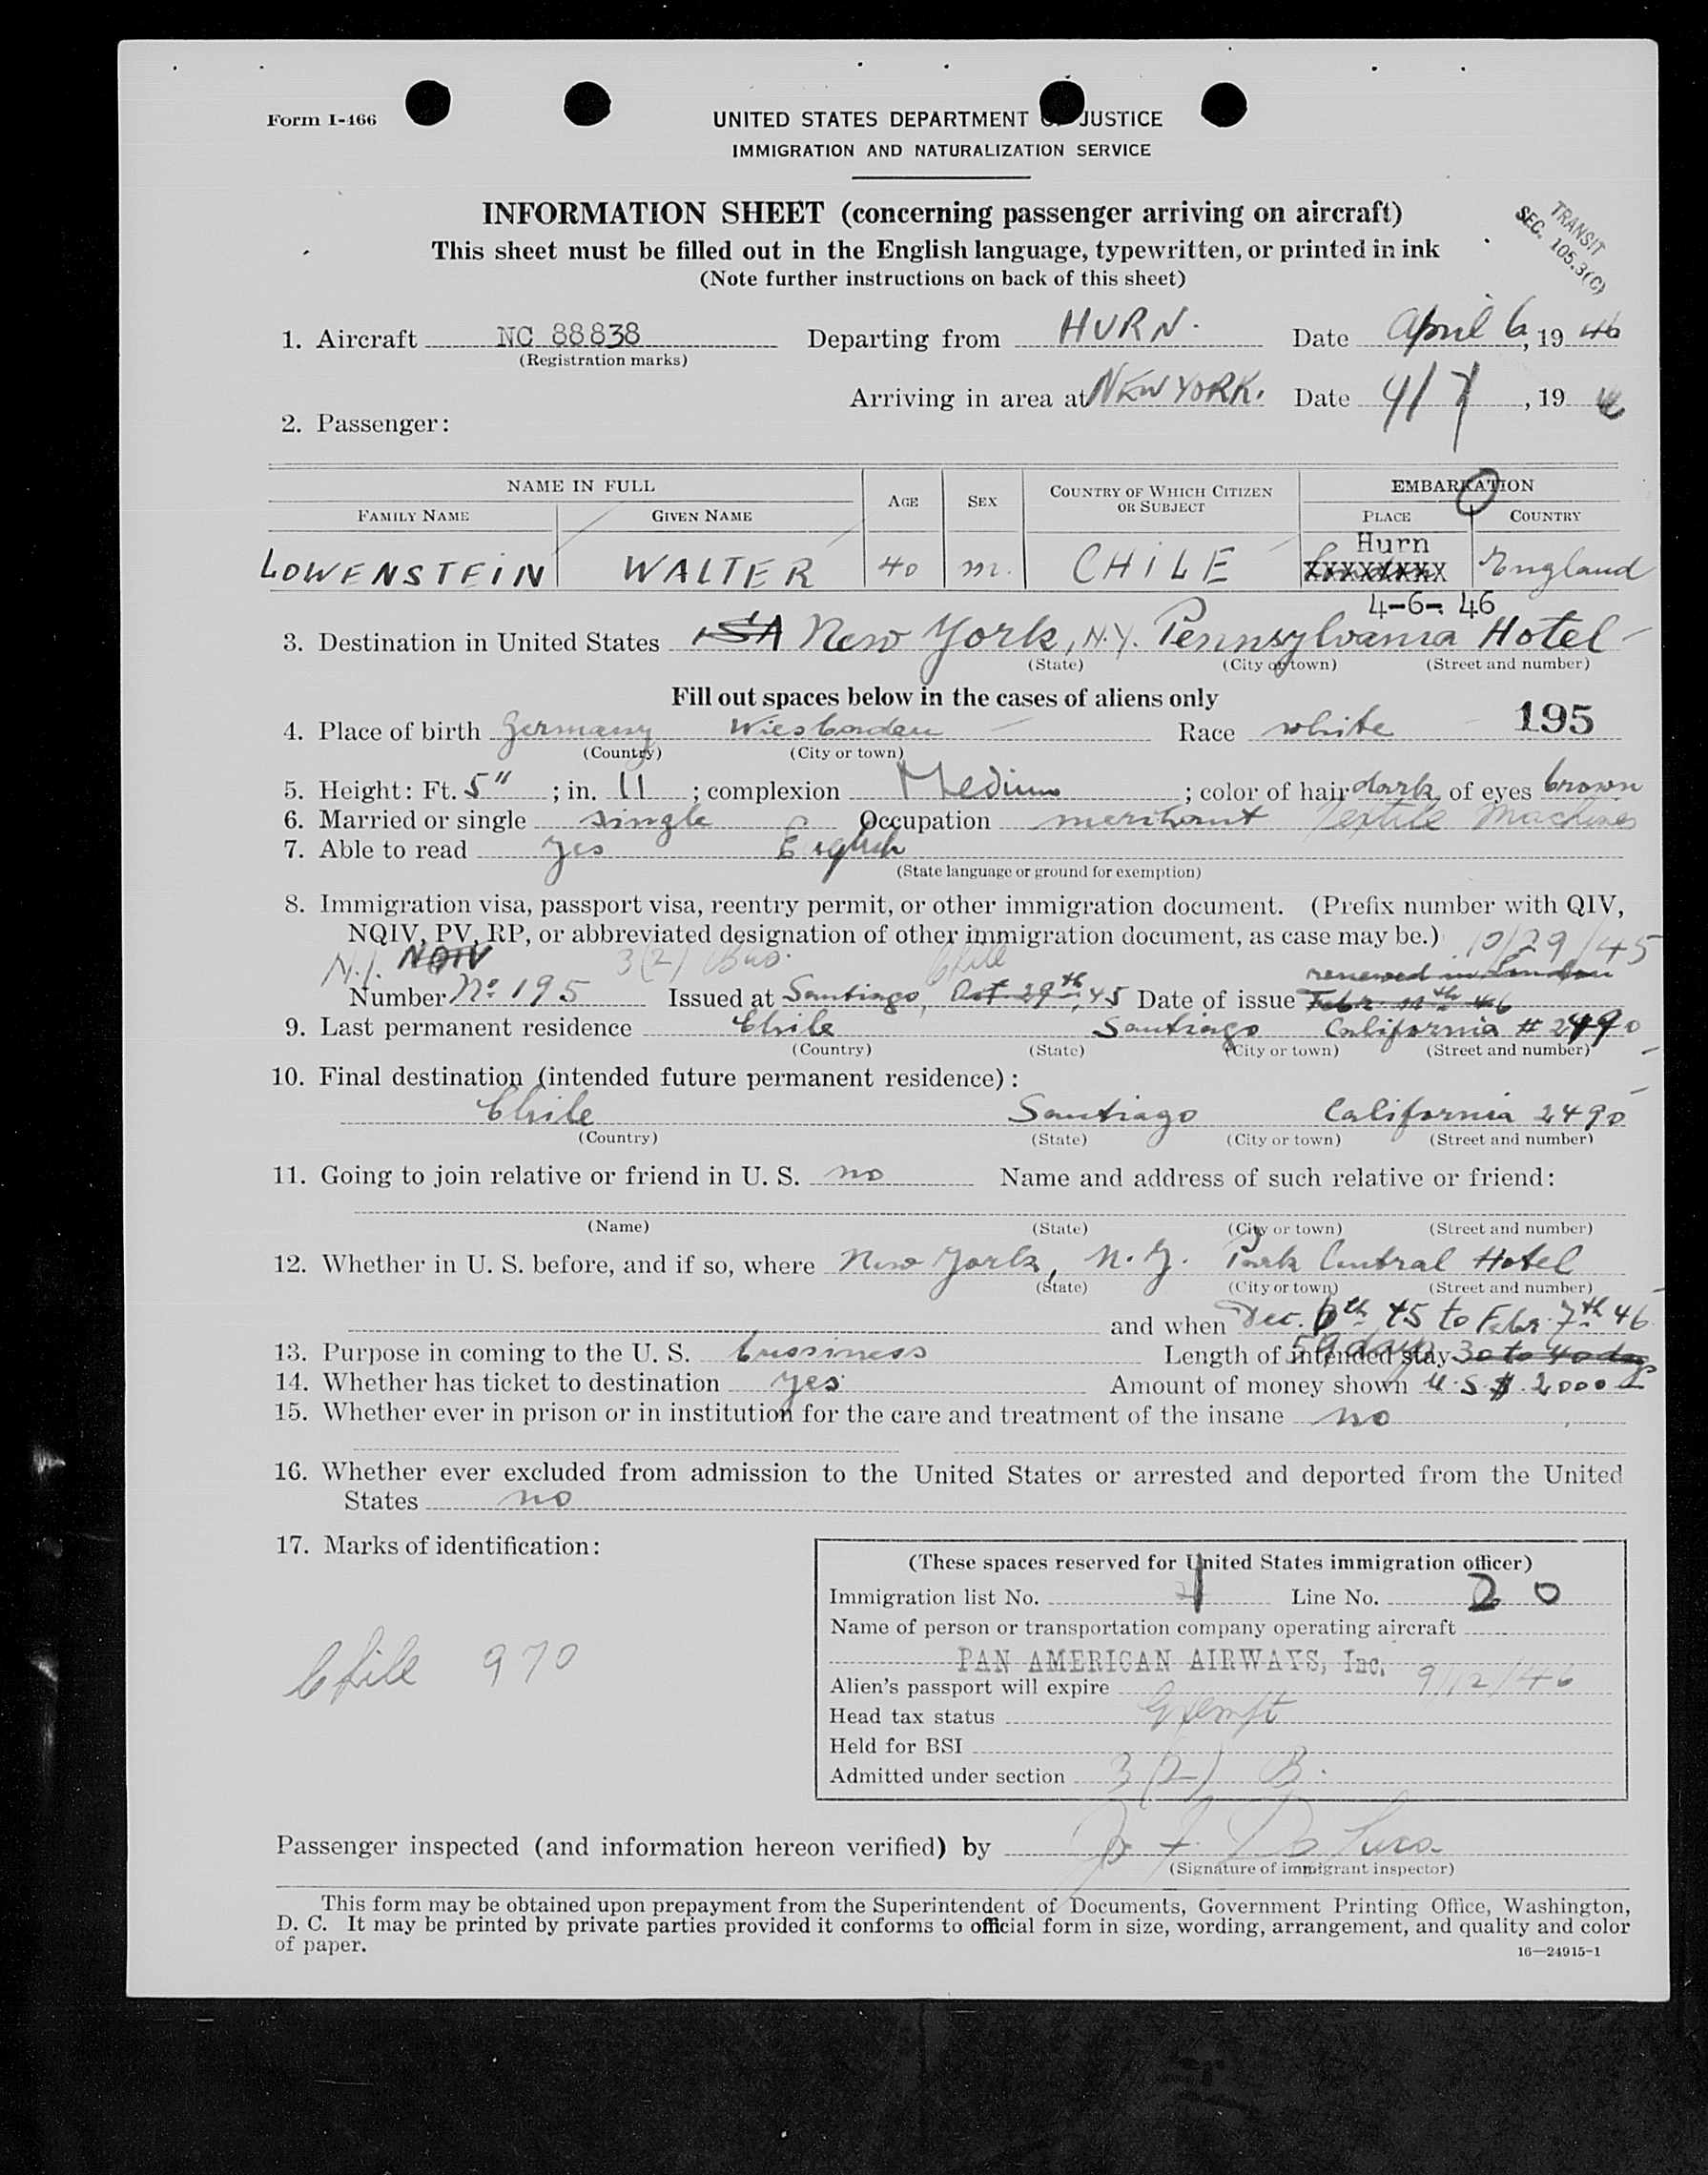 Form I-466
UNITED STATES DEPARTMENT OF JUSTICE
IMMIGRATION AND NATURALIZATION SERVICE
INFORMATION SHEET (concerning passenger arriving on aircraft)
This sheet must be filled out in the English language, typewritten, or printed in ink
(Note further instructions on back of this sheet)
TRANSIT
SEC. 105.3(C)
1. Aircraft NC 88838 Departing from HURN. Date April 6, 19 46
(Registration marks)
Arriving in area at NEW YORK. Date 4/7, 19 46
2. Passenger:
NAME IN FULL AGE SEX COUNTRY OF WHICH CITIZEN OR SUBJECT EMBARKATION
FAMILY NAME GIVEN NAME PLACE COUNTRY
Hurn
LOWENSTEIN WALTER 40 m. CHILE XXXXXXXX England
4-6-46
3. Destination in United States USA New York, N.Y. Pennsylvania Hotel
(State) (City or town) (Street and number)
Fill out spaces below in the cases of aliens only
195
4. Place of birth Germany Wiesbaden Race white
(Country) (City or town)
5. Height: Ft. 5" ; in. 11 ; complexion Medium ; color of hair dark of eyes brown
6. Married or single single Occupation merchant Textile Machines
7. Able to read yes English
(State language or ground for exemption)
8. Immigration visa, passport visa, reentry permit, or other immigration document. (Prefix number with QIV,
NQIV, PV, RP, or abbreviated designation of other immigration document, as case may be.) 10/29/45
NQIV 3(2) Bus. Chile renewed in London
Number No 195 Issued at Santiago, Oct 29th, 45 Date of issue Febr. 11th 46
9. Last permanent residence Chile Santiago California # 2490
(Country) (State) (City or town) (Street and number)
10. Final destination (intended future permanent residence):
Chile Santiago California 2490
(Country) (State) (City or town) (Street and number)
11. Going to join relative or friend in U. S. no Name and address of such relative or friend:
(Name) (State) (City or town) (Street and number)
12. Whether in U. S. before, and if so, where New York, N.Y. Park Central Hotel
(State) (City or town) (Street and number)
and when Dec. 6th 45 to Febr. 7th 46
13. Purpose in coming to the U. S. bussiness Length of intended stay 59 days 30 to 40 days
14. Whether has ticket to destination yes Amount of money shown U.S $ 2000
15. Whether ever in prison or in institution for the care and treatment of the insane no
16. Whether ever excluded from admission to the United States or arrested and deported from the United
States no
17. Marks of identification:
Chile 970
(These spaces reserved for United States immigration officer)
Immigration list No. 4 Line No. 20
Name of person or transportation company operating aircraft
PAN AMERICAN AIRWAYS, Inc.
Alien's passport will expire 9/12/46
Head tax status Exempt
Held for BSI
Admitted under section 3(2) B.
Passenger inspected (and information hereon verified) by
(Signature of immigrant inspector)
This form may be obtained upon prepayment from the Superintendent of Documents, Government Printing Office, Washington,
D. C. It may be printed by private parties provided it conforms to official form in size, wording, arrangement, and quality and color
of paper.
16—24915-1